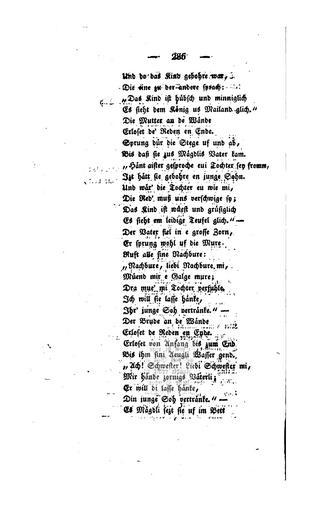 — 286 —
Und do das Kind gebohre war,
Die eine zu der andere sprach:
„Das Kind ist hübsch und minniglich
Es sieht dem König us Mailand glich.“
Die Mutter an de Wände
Erloset de' Reden en Ende.
Sprung dür die Stege uf und ab,
Bis daß sie zus Mägdlis Vater kam.
„Hänt aister gesproche eui Tochter sey fromm,
Jzt hätt sie gebohre en junge Sohn.
Und wär' die Tochter eu wie mi,
Die Red' muß uns verschwige sy;
Das Kind ist wüest und grüßiglich
Es sieht em leidige Teufel glich.“ —
Der Vater fiel in e grosse Zorn,
Er sprung wohl uf die Mure.
Ruft alle sine Nachbure:
„Nachbure, liebi Nachbure mi,
Müend mir e Galge mure;
Dra mue' mi Tochter verfuhle.
Ich will sie lasse hänke,
Ihr' junge Soh vertränke.“ —
Der Brude an de Wände
Erloset de Reden en Ende.
Erloset von Anfang bis zum End
Bis ihm sini Aeugli Wasser gend.
„Ach! Schwester! Liebi Schwester mi,
Mir hände zornigs Väterli;
Er will di lasse hänke,
Din junge Soh vertränke.“ —
Es Mägdli sezt sie uf im Bett